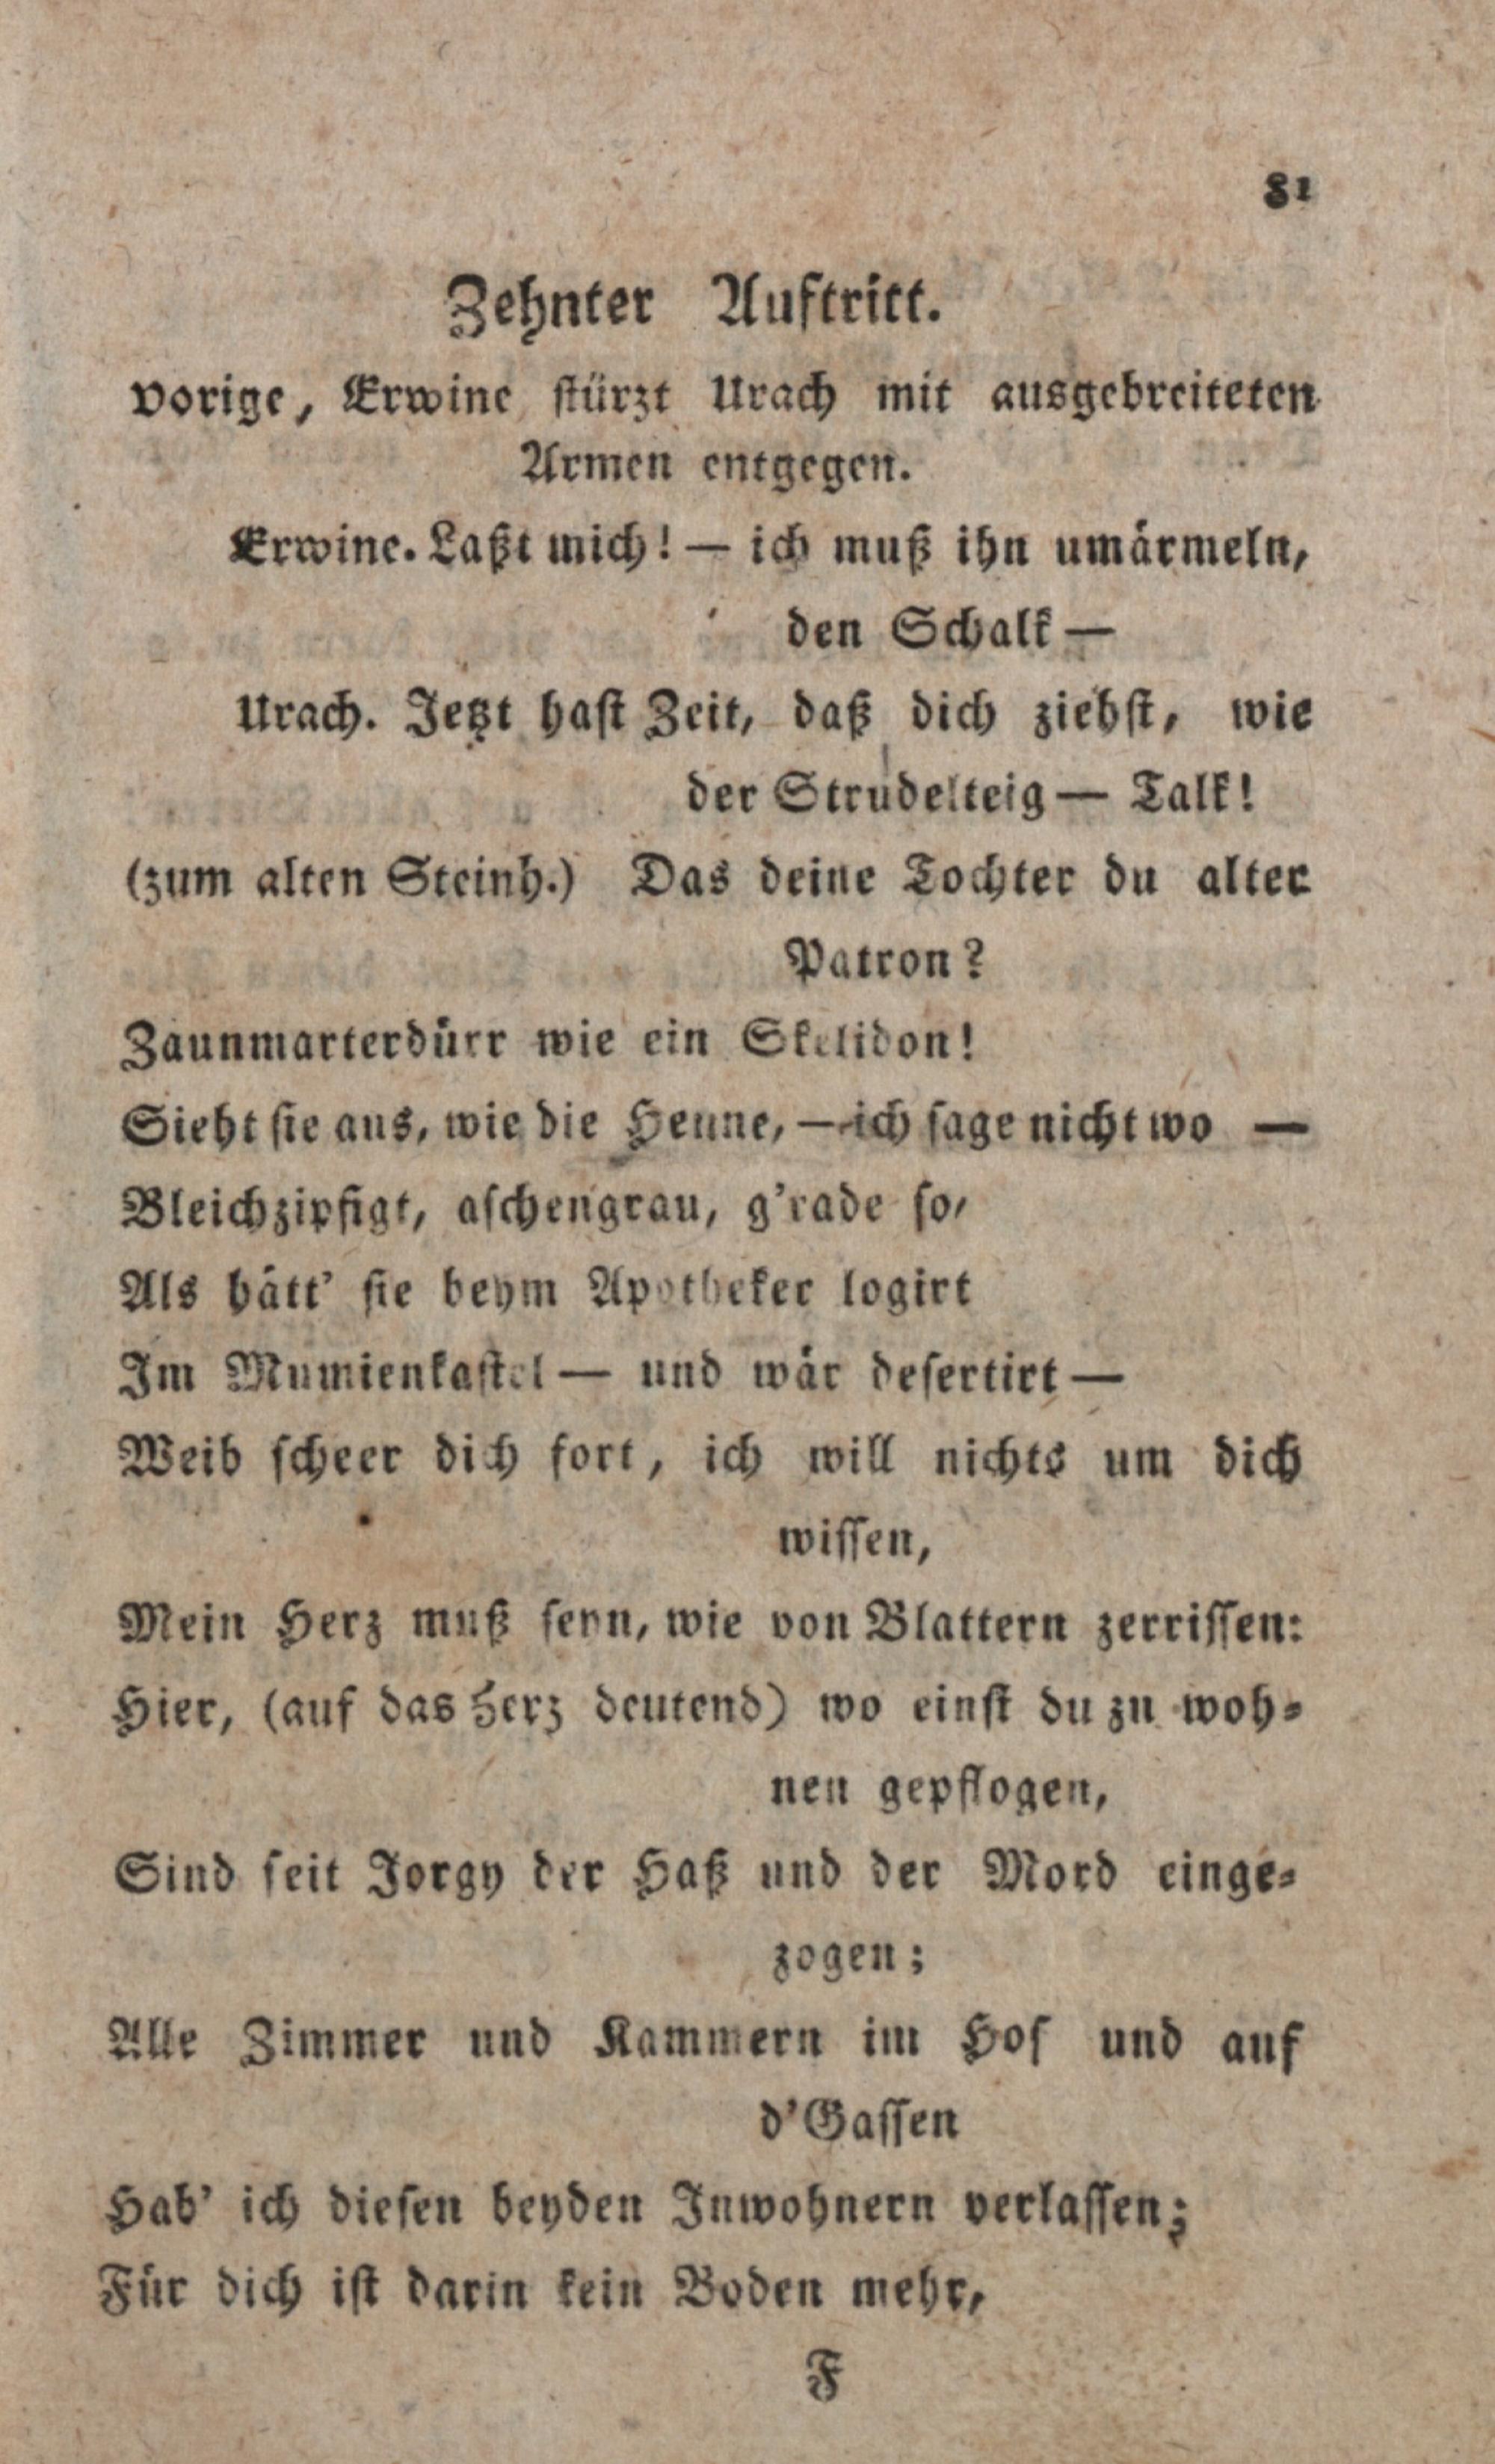 81
Zehnter Auftritt.
Vorige, Erwine stürzt Urach mit ausgebreiteten
Armen entgegen.
Erwine. Laßt mich! — ich muß ihn umärmeln,
den Schalk —
Urach. Jetzt hast Zeit, daß dich ziehst, wie
der Strudelteig — Talk!
(zum alten Steinh.) Das deine Tochter du alter
Patron?
Zaunmarterdürr wie ein Skelidon!
Sieht sie aus, wie die Henne, — ich sage nicht wo —
Bleichzipfigt, aschengrau, g'rade so,
Als hätt' sie beym Apotheker logirt
Im Mumienkastel — und wär desertirt —
Weib scheer dich fort, ich will nichts um dich
wissen,
Mein Herz muß seyn, wie von Blattern zerrissen:
Hier, (auf das Herz deutend) wo einst du zu woh⸗
nen gepflogen,
Sind seit Jorgy der Haß und der Mord einge⸗
zogen;
Alle Zimmer und Kammern im Hof und auf
d'Gassen
Hab' ich diesen beyden Inwohnern verlassen;
Für dich ist darin kein Boden mehr,
F